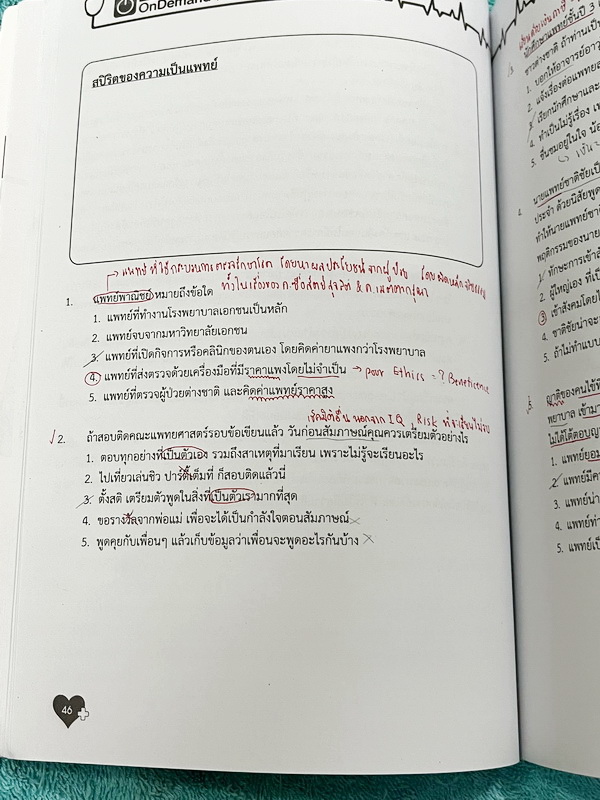 OnDemand
สปิริตของความเป็นแพทย์
1. แพทย์พาณิชย์หมายถึงข้อใด
1. แพทย์ที่ทำงานโรงพยาบาลเอกชนเป็นหลัก
2. แพทย์จบจากมหาวิทยาลัยเอกชน
3. แพทย์ที่เปิดกิจการหรือคลินิกของตนเอง โดยคิดค่ายาแพงกว่าโรงพยาบาล
4. แพทย์ที่ส่งตรวจด้วยเครื่องมือที่มีราคาแพงโดยไม่จำเป็น → poor Ethics = ? Beneficence
5. แพทย์ที่ตรวจผู้ป่วยต่างชาติ และคิดค่าแพทย์ราคาสูง
IQ Risk
2. ถ้าสอบติดคณะแพทยศาสตร์รอบข้อเขียนแล้ว วันก่อนสัมภาษณ์คุณควรเตรียมตัวอย่างไร
1. ตอบทุกอย่างที่เป็นตัวเอง รวมถึงสาเหตุที่มาเรียน เพราะไม่รู้จะเรียนอะไร
2. ไปเที่ยวเล่นชิว ปาร์ตี้เต็มที่ ก็สอบติดแล้วนี่
3. ตั้งสติ เตรียมตัวพูดในสิ่งที่เป็นตัวเรามากที่สุด
4. ขอรางวัลจากพ่อแม่ เพื่อจะได้เป็นกำลังใจตอนสัมภาษณ์
5. พูดคุยกับเพื่อนๆ แล้วเก็บข้อมูลว่าเพื่อนจะพูดอะไรกันบ้าง
46
นักศึกษาแพทย์ชั้นปี 3
ชาวต่างชาติ ถ้าท่านเป็น
1. บอกให้อาจารย์อาว
2. แจ้งเรื่องต่อแพทยส
3. เรียกนักศึกษาและ
4. ทำเป็นไม่รู้เรื่อง เพ
5. ชื่นชมอยู่ในใจ
4. นายแพทย์ชาติชัยเป็
ประจำ ด้วยนิสัยพูด
ทำให้นายแพทย์ชา
พฤติกรรมของนาย
1. ทักษะการเข้าสั
2. ผู้ใหญ่เอง ที่เป็
3. เข้าสังคมโดยไ
4. ชาติชัยน่าจะ
5. ถ้าไม่ทำแบบ
5. ญาติของคนไข้ที่
พยาบาล เข้ามา
ไม่ได้โต้ตอบญา
1. แพทย์ยอม
2. แพทย์มีคว
3. แพทย์น่า
4. แพทย์ทำ
5. แพทย์เป็